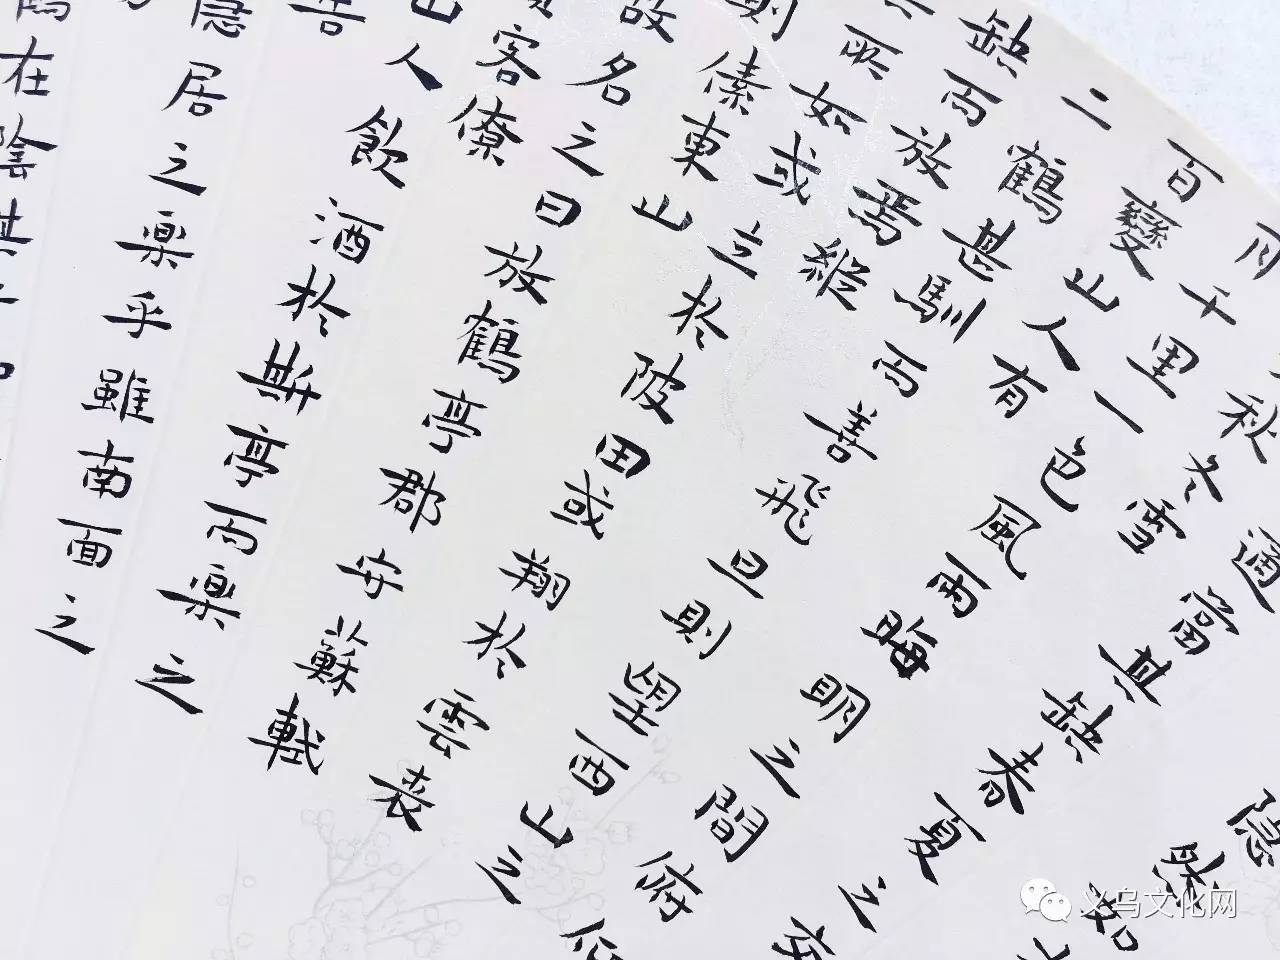 隱然如
通當其缺春夏之交
秋冬雪
月千里一色風雨晦明之間府仰
百變山人有
二鶴甚馴而善飛旦則望西山之
缺而放焉縱
所如或立於陂田或翔於雲表
則傃東山
故名之曰放鶴亭郡安蘇軾
客僚
山人飲酒於斯亭而樂之
告
隱居之樂乎雖南面之
鶴在陰其
义乌文化网